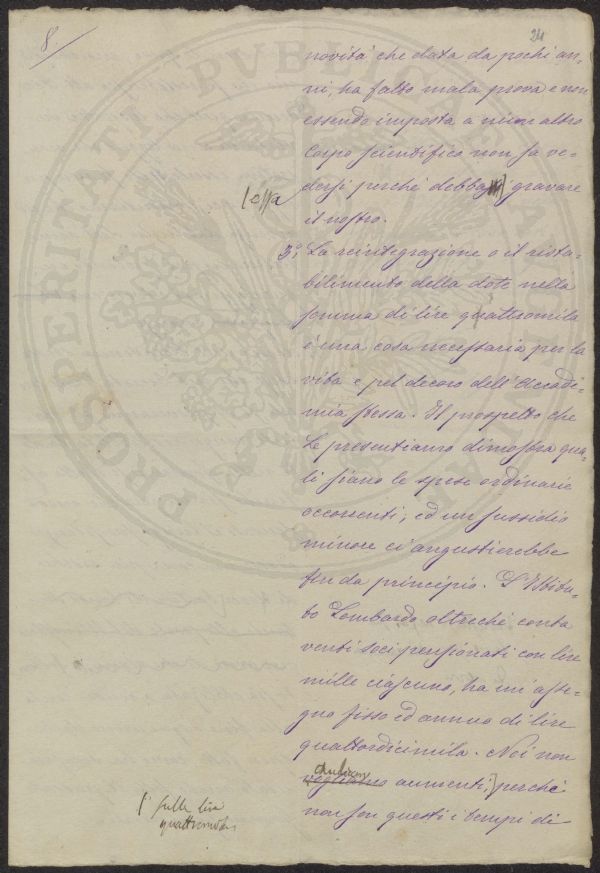 8
24
novità che data da pochi an-
ni, ha fatto mala prova e non
essendo imposta a niun altro
Corpo scientifico non sa ve-
dersi perchè debba gravare
essa
il nostro.
3.° La reintegrazione o il rista-
bilimento della dote nella
somma di lire quattromila
è una cosa necessaria per la
vita e pel decoro dell'Accade-
mia stessa. Il prospetto che
Le presentiamo dimostra qua-
li siano le spese ordinarie
occorrenti, ed un sussidio
minore ci angustierebbe
fin da principio. L'Istitu-
to Lombardo oltrechè conta
venti soci pensionati con lire
mille ciascuno, ha un asse-
gno fisso ed annuo di lire
quattordicimila. Noi non
vogliamo aumenti, perchè
non son questi i tempi di
sulle lire
quattromila
PROSPERITATI PVBLICAE AVGENDAE